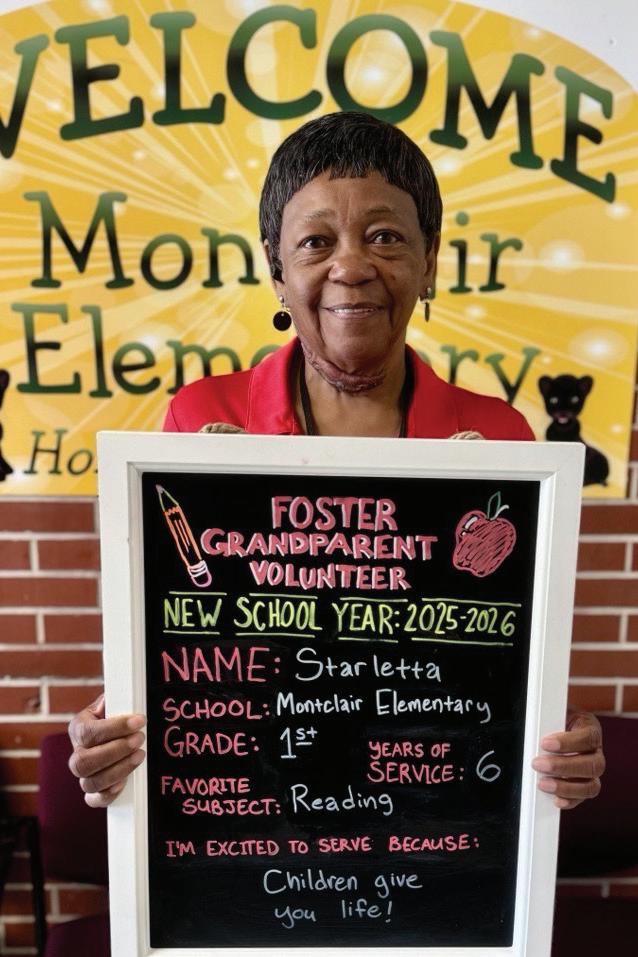 WELCOME
Mon air
Elem ry
Ho
FOSTER
GRANDPARENT
VOLUNTEER
NEW SCHOOL YEAR: 2025-2026
NAME: Starletta
SCHOOL: Montclair Elementary
GRADE: 1st
YEARS OF
SERVICE: 6
FAVORITE
SUBJECT: Reading
I'M EXCITED TO SERVE BECAUSE:
Children give
you life!